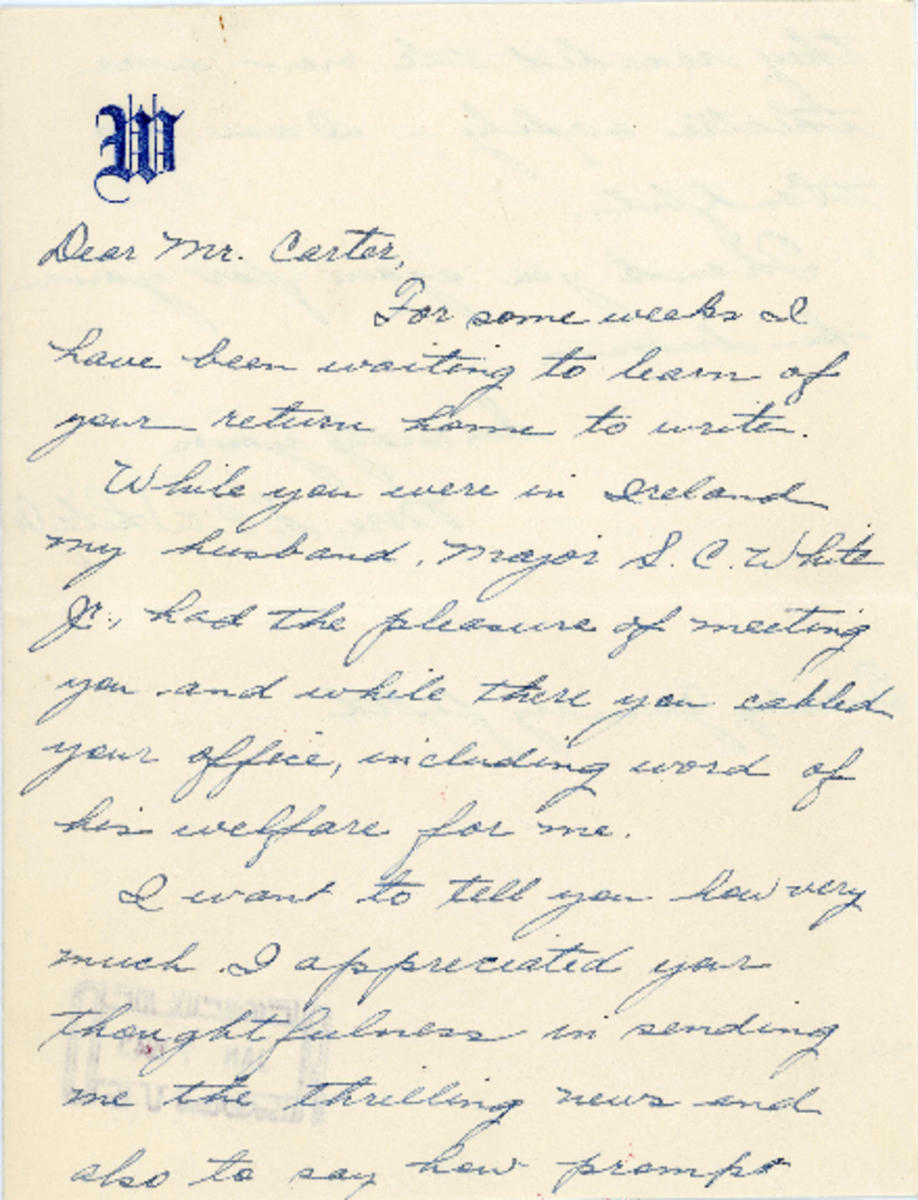 W
Dear Mr. Carter,
For some weeks I
have been waiting to learn of
your return home to write.
While you were in Ireland
my husband, Major S. C. White
Jr., had the pleasure of meeting
you and while there you cabled
your office, including word of
his welfare for me.
I want to tell you how very
much I appreciated your
thoughtfulness in sending
me the thrilling news and
also to say how prompt